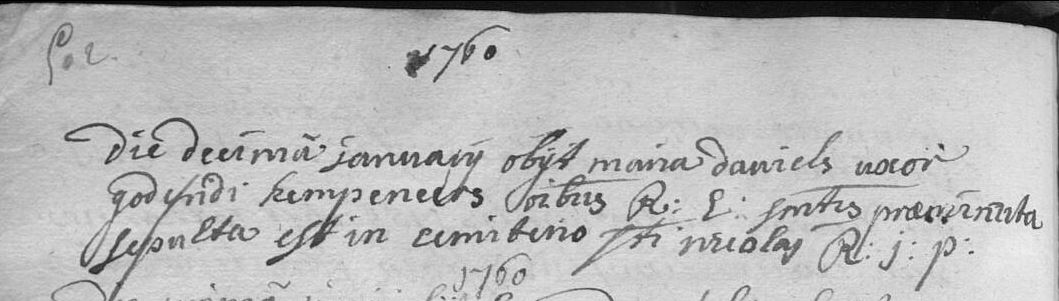 1760
die decimâ januarij obijt maria daniels uxor
godefridi kempeneers oibus R: E: smtis præmunita
sepulta est in cemiterio sti nicolaj R: j: p:
1760